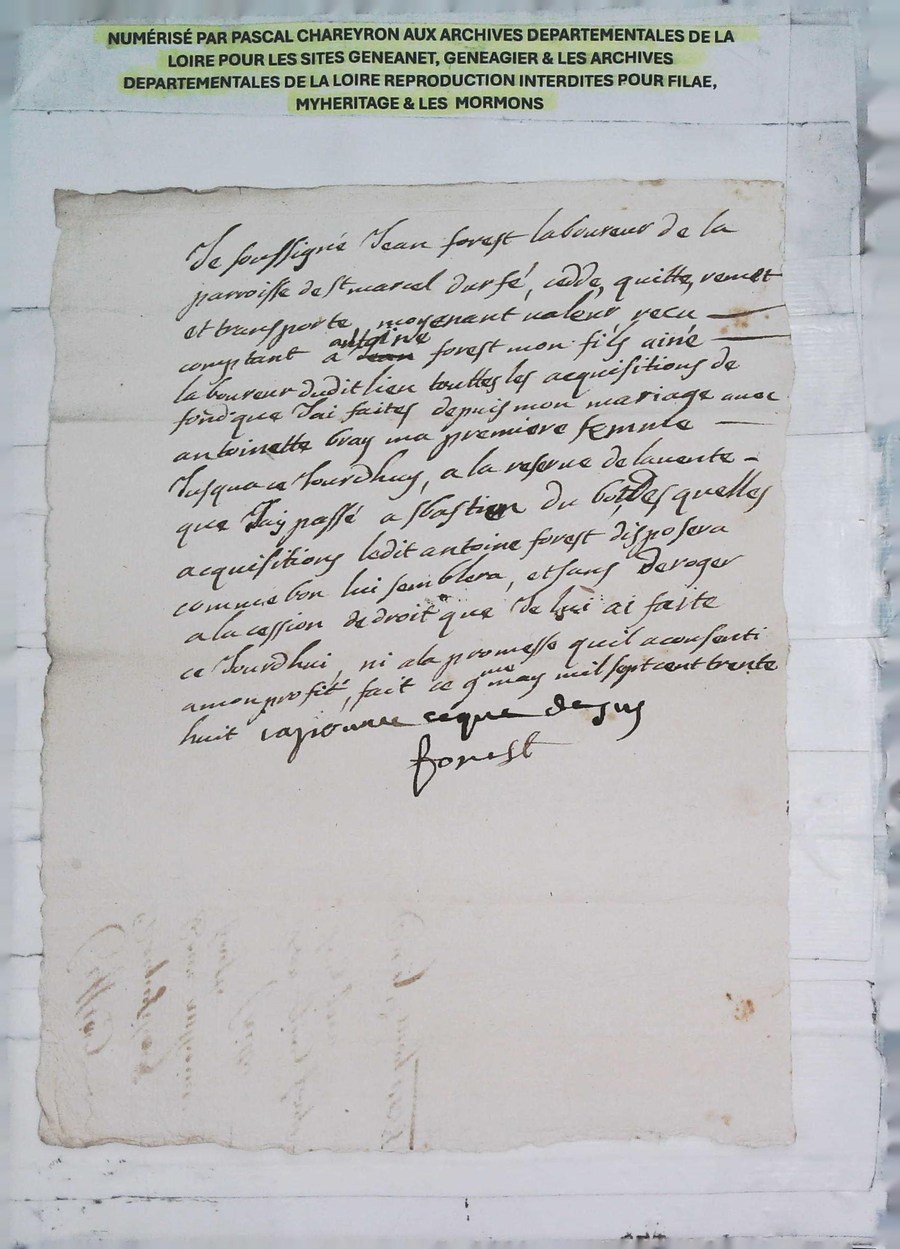 NUMÉRISÉ PAR PASCAL CHAREYRON AUX ARCHIVES DEPARTEMENTALES DE LA
LOIRE POUR LES SITES GENEANET, GENEAGIER & LES ARCHIVES
DEPARTEMENTALES DE LA LOIRE REPRODUCTION INTERDITES POUR FILAE,
MYHERITAGE & LES MORMONS
Je soussigné Jean forest laboureur de la
parroisse de St marcel durfé, cedde, quitte, remet
et transporte, moyenant valeur recu
antoine
comptant a Jean forest mon fils ainé
laboureur dudit lieu touttes les acquisitions de
fond que Jai faites depuis mon mariage avec
antoinette bray ma premiere femme
Jusqua ce Jourdhuy, a la reserve de la vente
que Jay passé a sbastien du bost, desquelles
acquisitions ledit antoine forest disposera
comme bon lui semblera, et sans deroger
a la cession de droit que Je lui ai faite
ce Jourdhui, ni a la promesse quil a consenti
a mon profit, fait ce qme may mil sept cent trente
huit ceque desus
forest